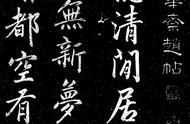 趙帖
清閒居
無新夢
都空有